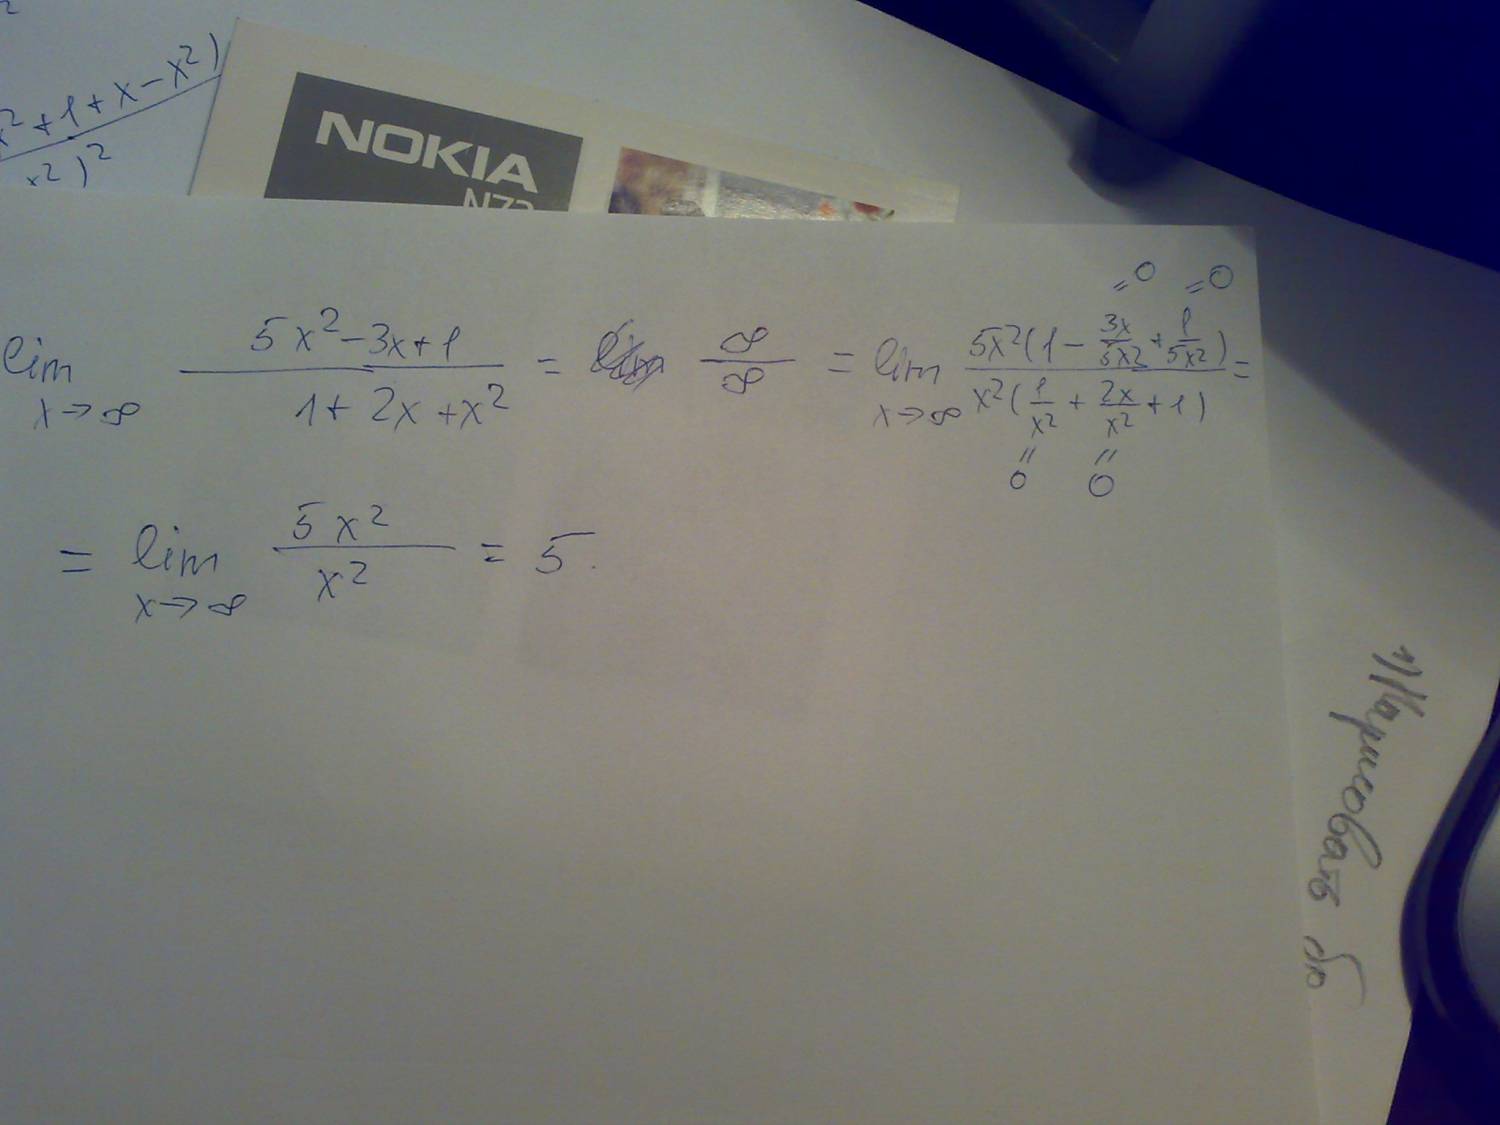 2
x² + 1 + x - x²)
x²)²
NOKIA
N73
= 0 = 0
lim x→∞ (5x² - 3x + 1)/(1 + 2x + x²) = ∞/∞ = lim x→∞ 5x²(1 - 3x/5x² + 1/5x²)/x²(1/x² + 2x/x² + 1) =
= 0 = 0
= lim x→∞ 5x²/x² = 5.